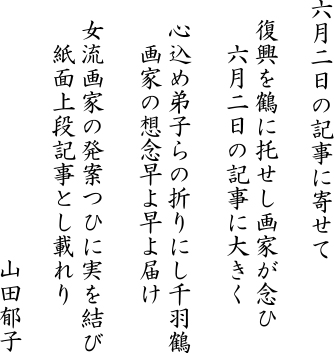 六月二日の記事に寄せて
復興を鶴に托せし画家が念ひ
六月二日の記事に大きく
心込め弟子らの折りにし千羽鶴
画家の想念早よ早よ届け
女流画家の発案つひに実を結び
紙面上段記事とし載れり
山田郁子